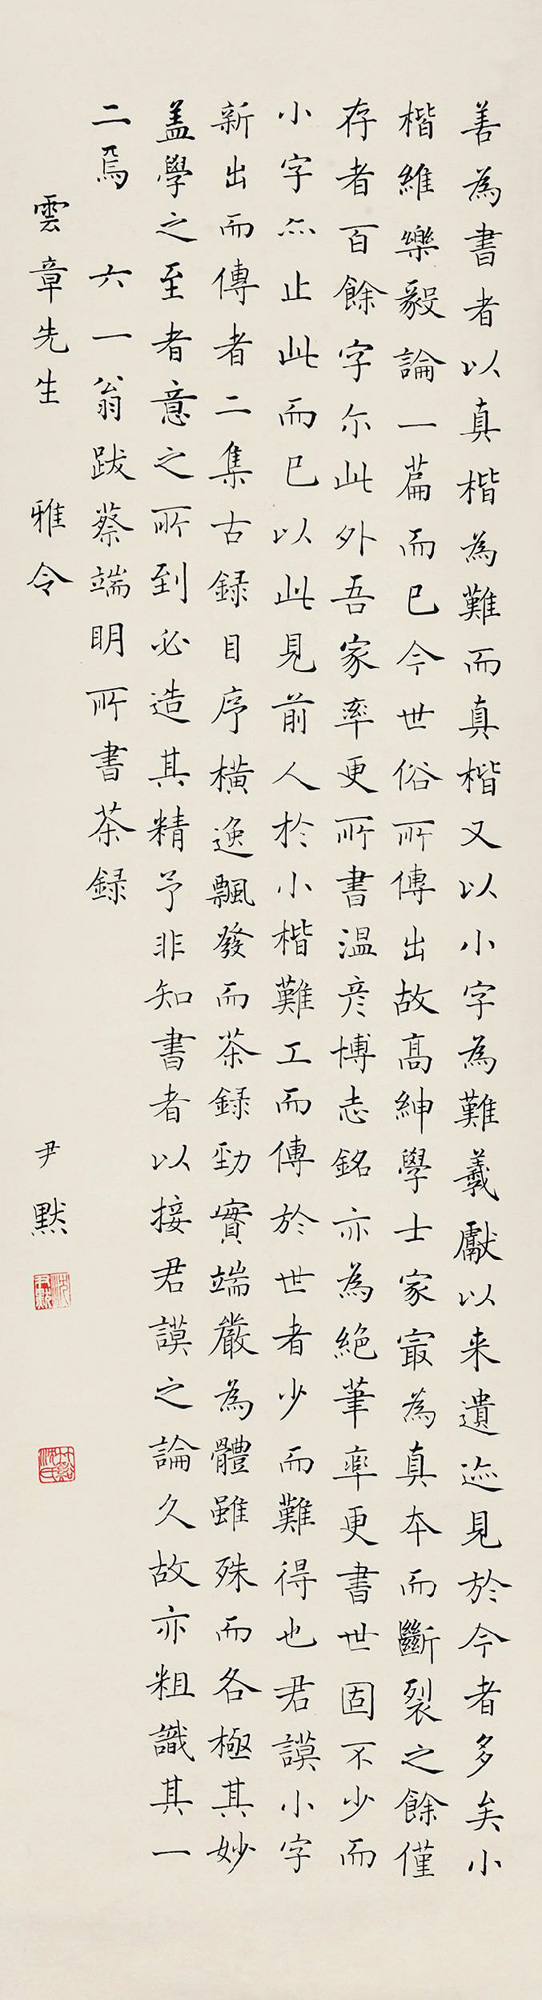 善為書者以真楷為難而真楷又以小字為難羲獻以来遺迹見於今者多矣小
楷維樂毅論一篇而已今世俗所傳出故高紳學士家寂為真本而斷裂之餘僅
存者百餘字尓此外吾家率更所書温彦博志銘亦為絶筆率更書世固不少而
小字亦止此而已以此見前人於小楷難工而傳於世者少而難得也君謨小字
新出而傳者二集古録目序橫逸飄發而茶録勁實端嚴為體雖殊而各極其妙
盖學之至者意之所到必造其精予非知書者以接君謨之論久故亦粗識其一
二焉 六一翁跋蔡端明所書茶録
雲章先生 雅令
尹默
沈尹默
竹谿沈氏